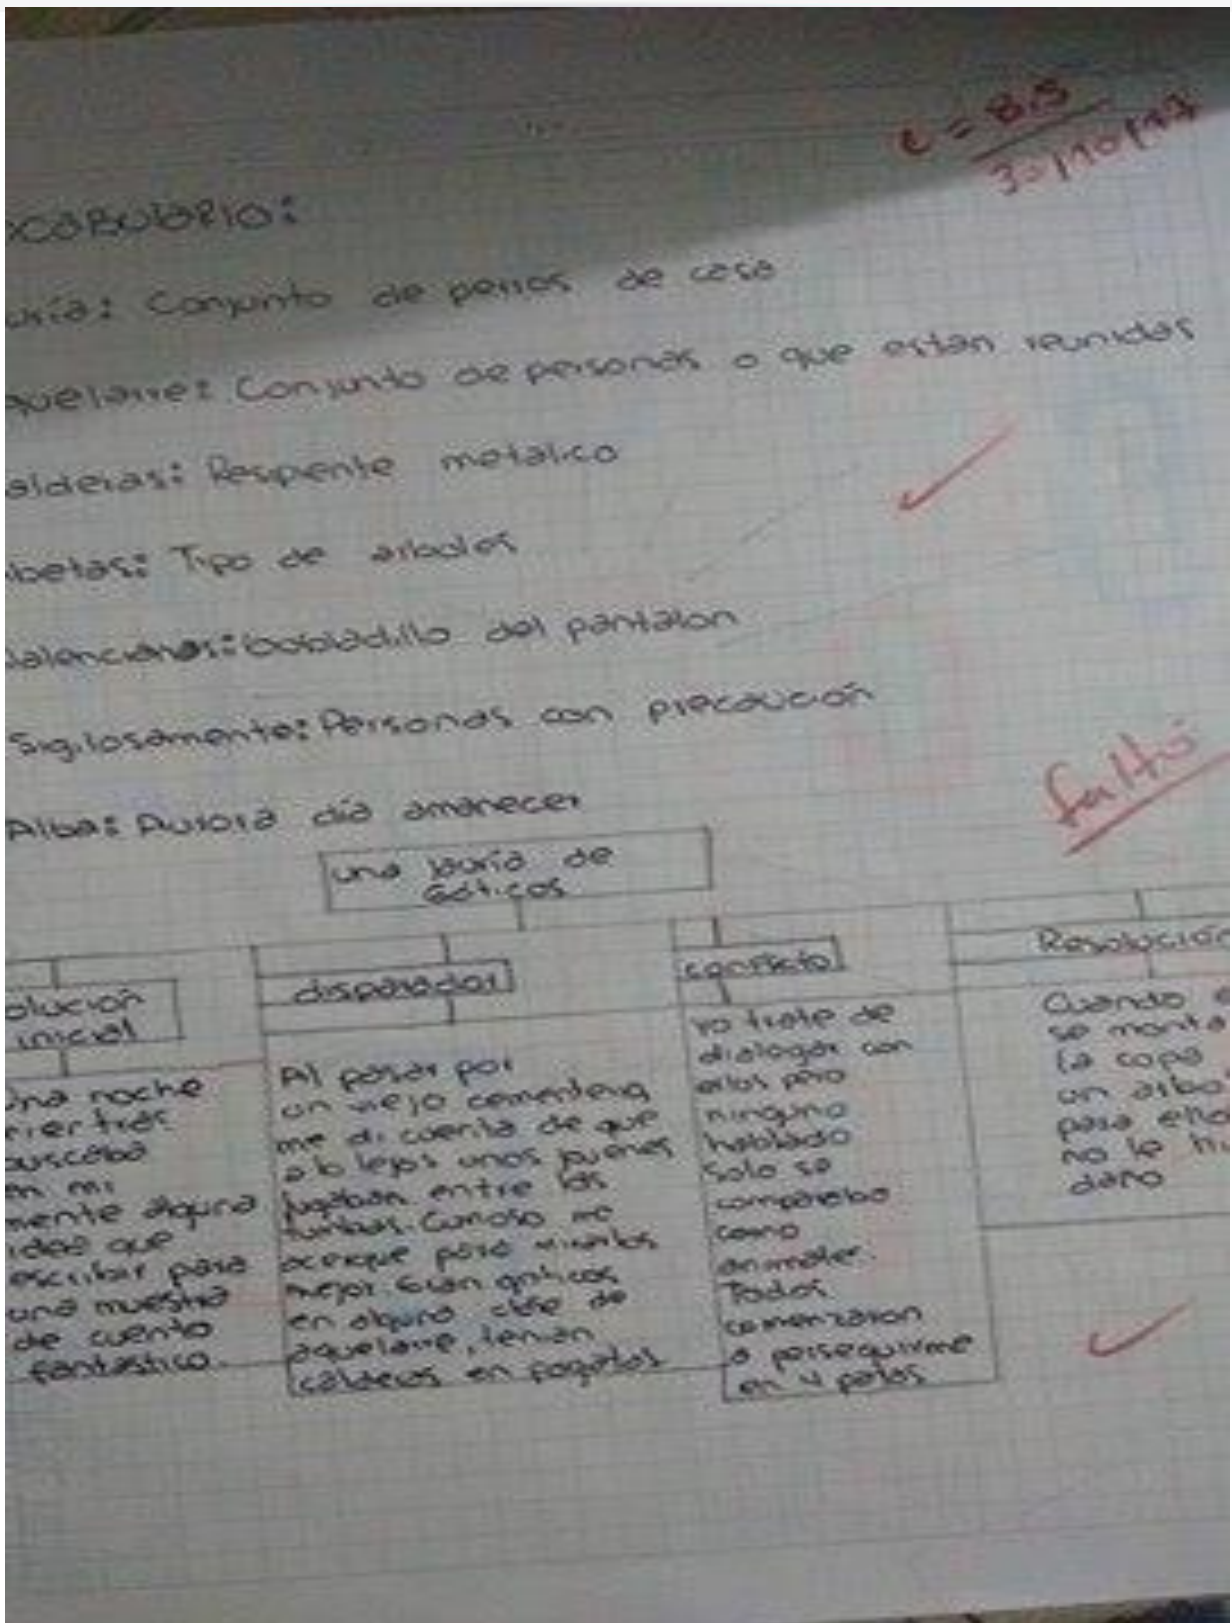 c = 8.5
30/10/17
OCABULARIO:
uría: Conjunto de perros de casa
quelarre: Conjunto de personas o que estan reunidas
alderas: Resipiente metalico
betas: Tipo de arboles
alencianas: dobladillo del pantalon
Sigilosamente: Personas con precaución
faltó
Alba: Aurora día amanecer
una jauría de
Góticos
olución
inicial
una noche
buscaba
en mi
mente alguna
idea que
escribir para
una muestra
de cuento
fantastico.
disparador
Al pasar por
un viejo cementerio
me di cuenta de que
a lo lejos unos jovenes
jugaban entre las
tumbas. Curioso me
acerque para mirarlos
mejor. Eran goticos
en alguna clase de
aquelarre, tenian
calderas en fogatas
conflicto
Yo trate de
dialogar con
ellos pero
ninguno
hablado
solo se
comparaba
como
animales.
Todos
comenzaron
a perseguirme
en 4 patas
Resolución
Cuando e
se monta
la copa
un arbol
para ello
no le hi
daño